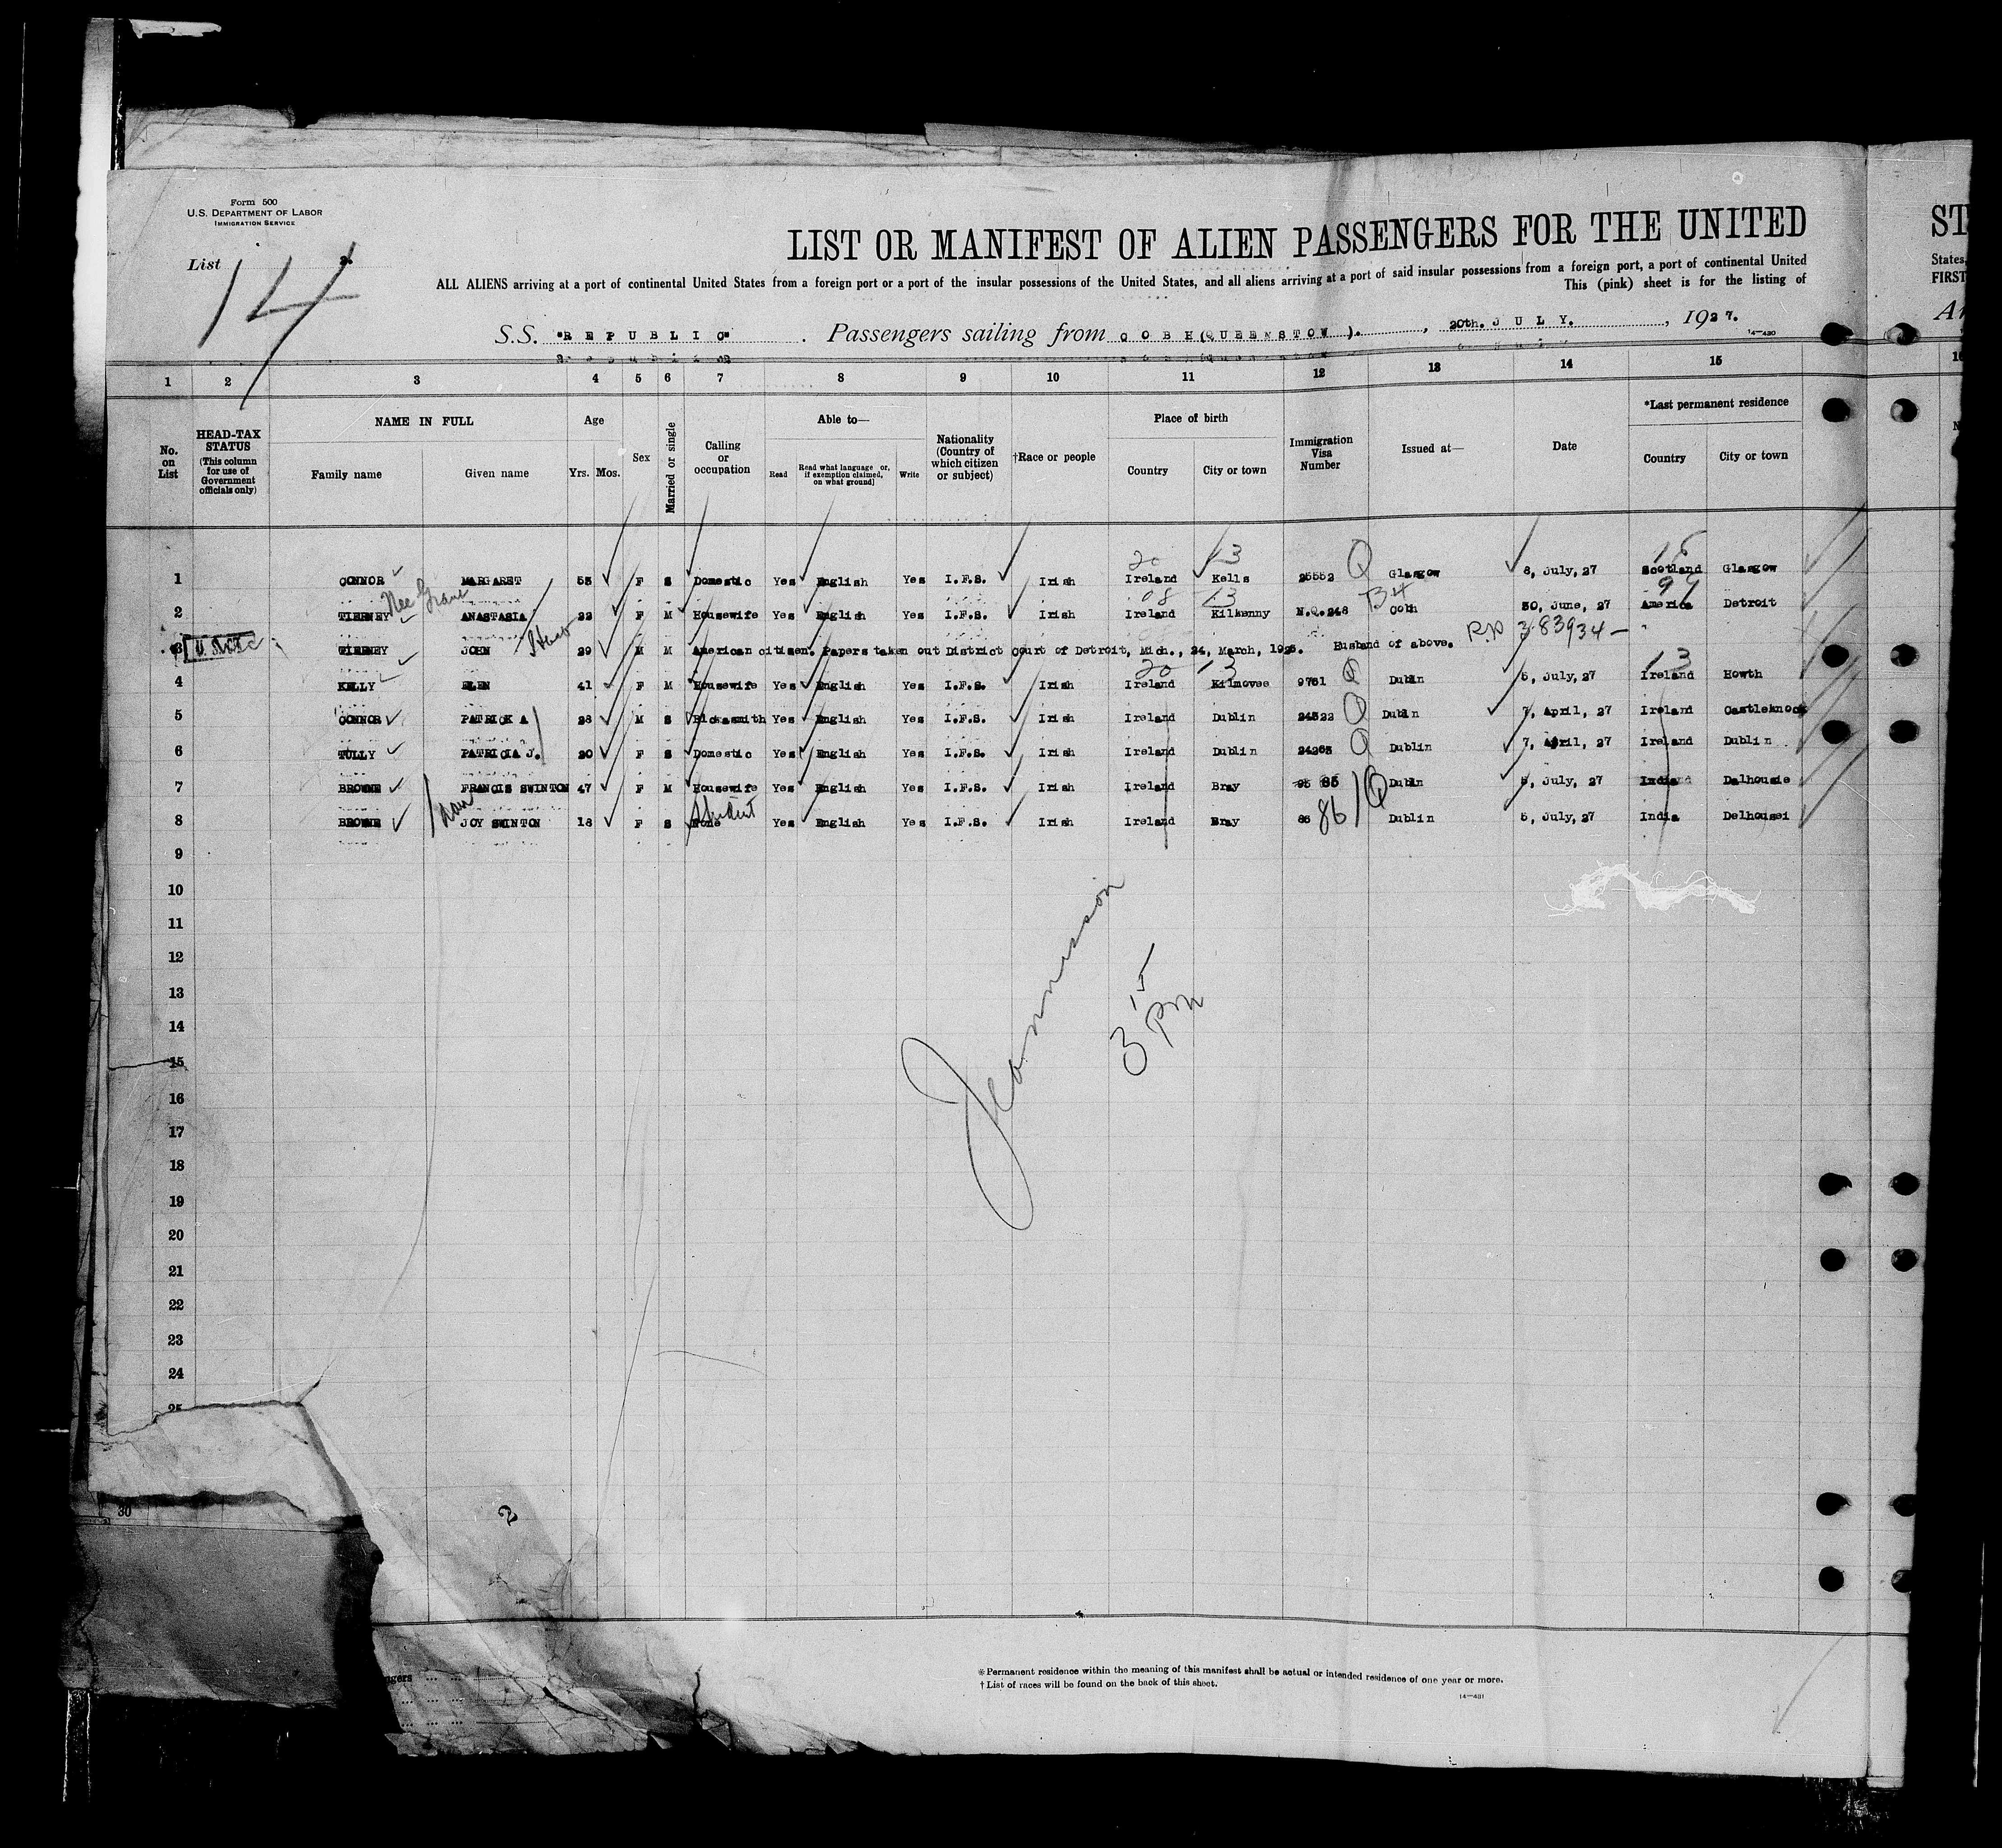 Form 500
U.S. DEPARTMENT OF LABOR
IMMIGRATION SERVICE
List 14
LIST OR MANIFEST OF ALIEN PASSENGERS FOR THE UNITED ST
ALL ALIENS arriving at a port of continental United States from a foreign port or a port of the insular possessions of the United States, and all aliens arriving at a port of said insular possessions from a foreign port, a port of continental United States,
This (pink) sheet is for the listing of FIRST
S.S. "REPUBLIC". Passengers sailing from COBH(QUEENSTOWN )., 20th. JULY., 1927.
14—430
1 2 3 4 5 6 7 8 9 10 11 12 13 14 15
No. on List
HEAD-TAX STATUS (This column for use of Government officials only)
NAME IN FULL
Family name Given name
Age
Yrs. Mos.
Sex
Married or single
Calling or occupation
Able to—
Read Read what language [or, if exemption claimed, on what ground] Write
Nationality (Country of which citizen or subject)
†Race or people
Place of birth
Country City or town
Immigration Visa Number
Issued at—
Date
*Last permanent residence
Country City or town
20 13 Q 15
1 CONNOR MARGARET 55 F S Domestic Yes English Yes I.F.S. Irish Ireland Kells 25552 Glasgow 8, July, 27 Scotland Glasgow
Nee Grane 08 13 B4 99
2 TIERNEY ANASTASIA 22 F M Housewife Yes English Yes I.F.S. Irish Ireland Kilkenny N.Q.248 Cobh 30, June, 27 America Detroit
R.P 383934 —
3 TIERNEY JOHN 29 M M American citizen. Papers taken out District Court of Detroit, Mich., 24, March, 1926. Husband of above.
20 13 Q 13
4 KELLY ELEN 41 F M Housewife Yes English Yes I.F.S. Irish Ireland Kilmovee 9761 Dublin 5, July, 27 Ireland Howth
5 CONNOR PATRICK A 28 M S Blcksmith Yes English Yes I.F.S. Irish Ireland Dublin 24522 Q Dublin 7, April, 27 Ireland Castleknock
6 TULLY PATRICIA J. 20 F S Domestic Yes English Yes I.F.S. Irish Ireland Dublin 24265 Q Dublin 7, April, 27 Ireland Dublin
7 BROWNE FRANCIS SWINTON 47 F M Housewife Yes English Yes I.F.S. Irish Ireland Bray 95 85 Q Dublin 5, July, 27 India Dalhousie
Student
8 BROWNE JOY SWINTON 18 F S None Yes English Yes I.F.S. Irish Ireland Bray 86 86 Dublin 5, July, 27 India Delhousei
9
10
11
12
13
14
15
16
17
18
19
20
21
22
23
24
25
3 15 pm
30
2
*Permanent residence within the meaning of this manifest shall be actual or intended residence of one year or more.
†List of races will be found on the back of this sheet.
14—431